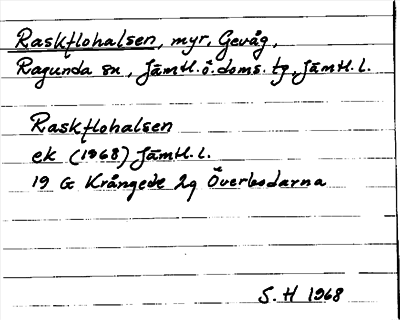 Raskflohalsen, myr, Gevåg,
Ragunda sn, Jämtl. ö. doms. tg, Jämtl. l.
Raskflohalsen
ek (1968) Jämtl. l.
19 G Krångede 2g Överbodarna
S. H 1968